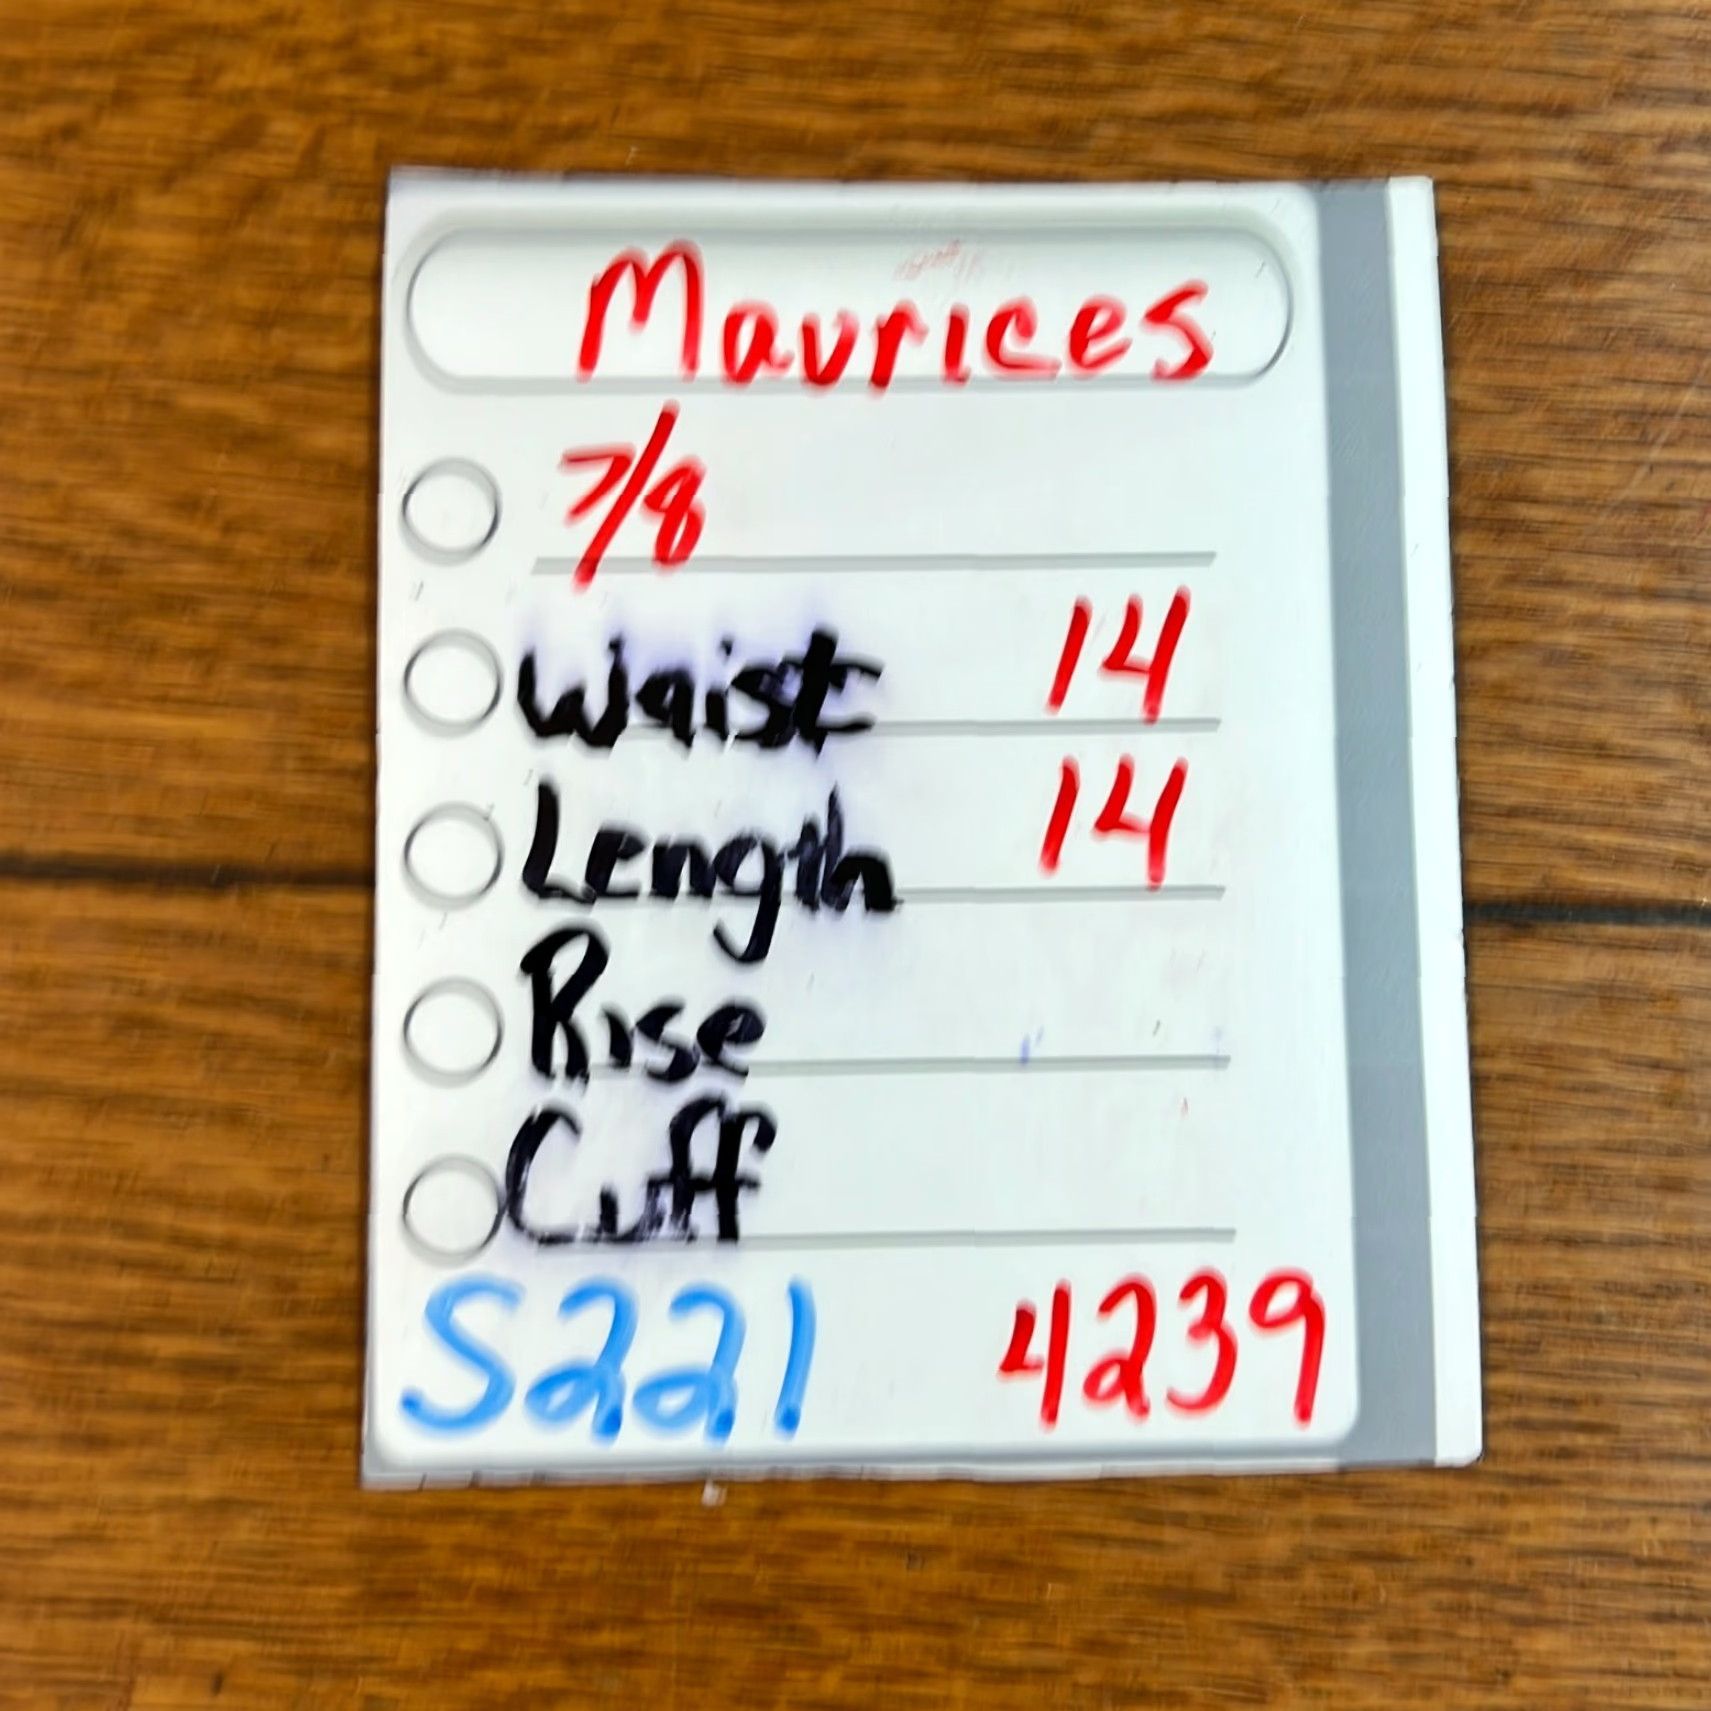 Maurices
7/8
Waist 14
Length 14
Rise
Cuff
S221 4239